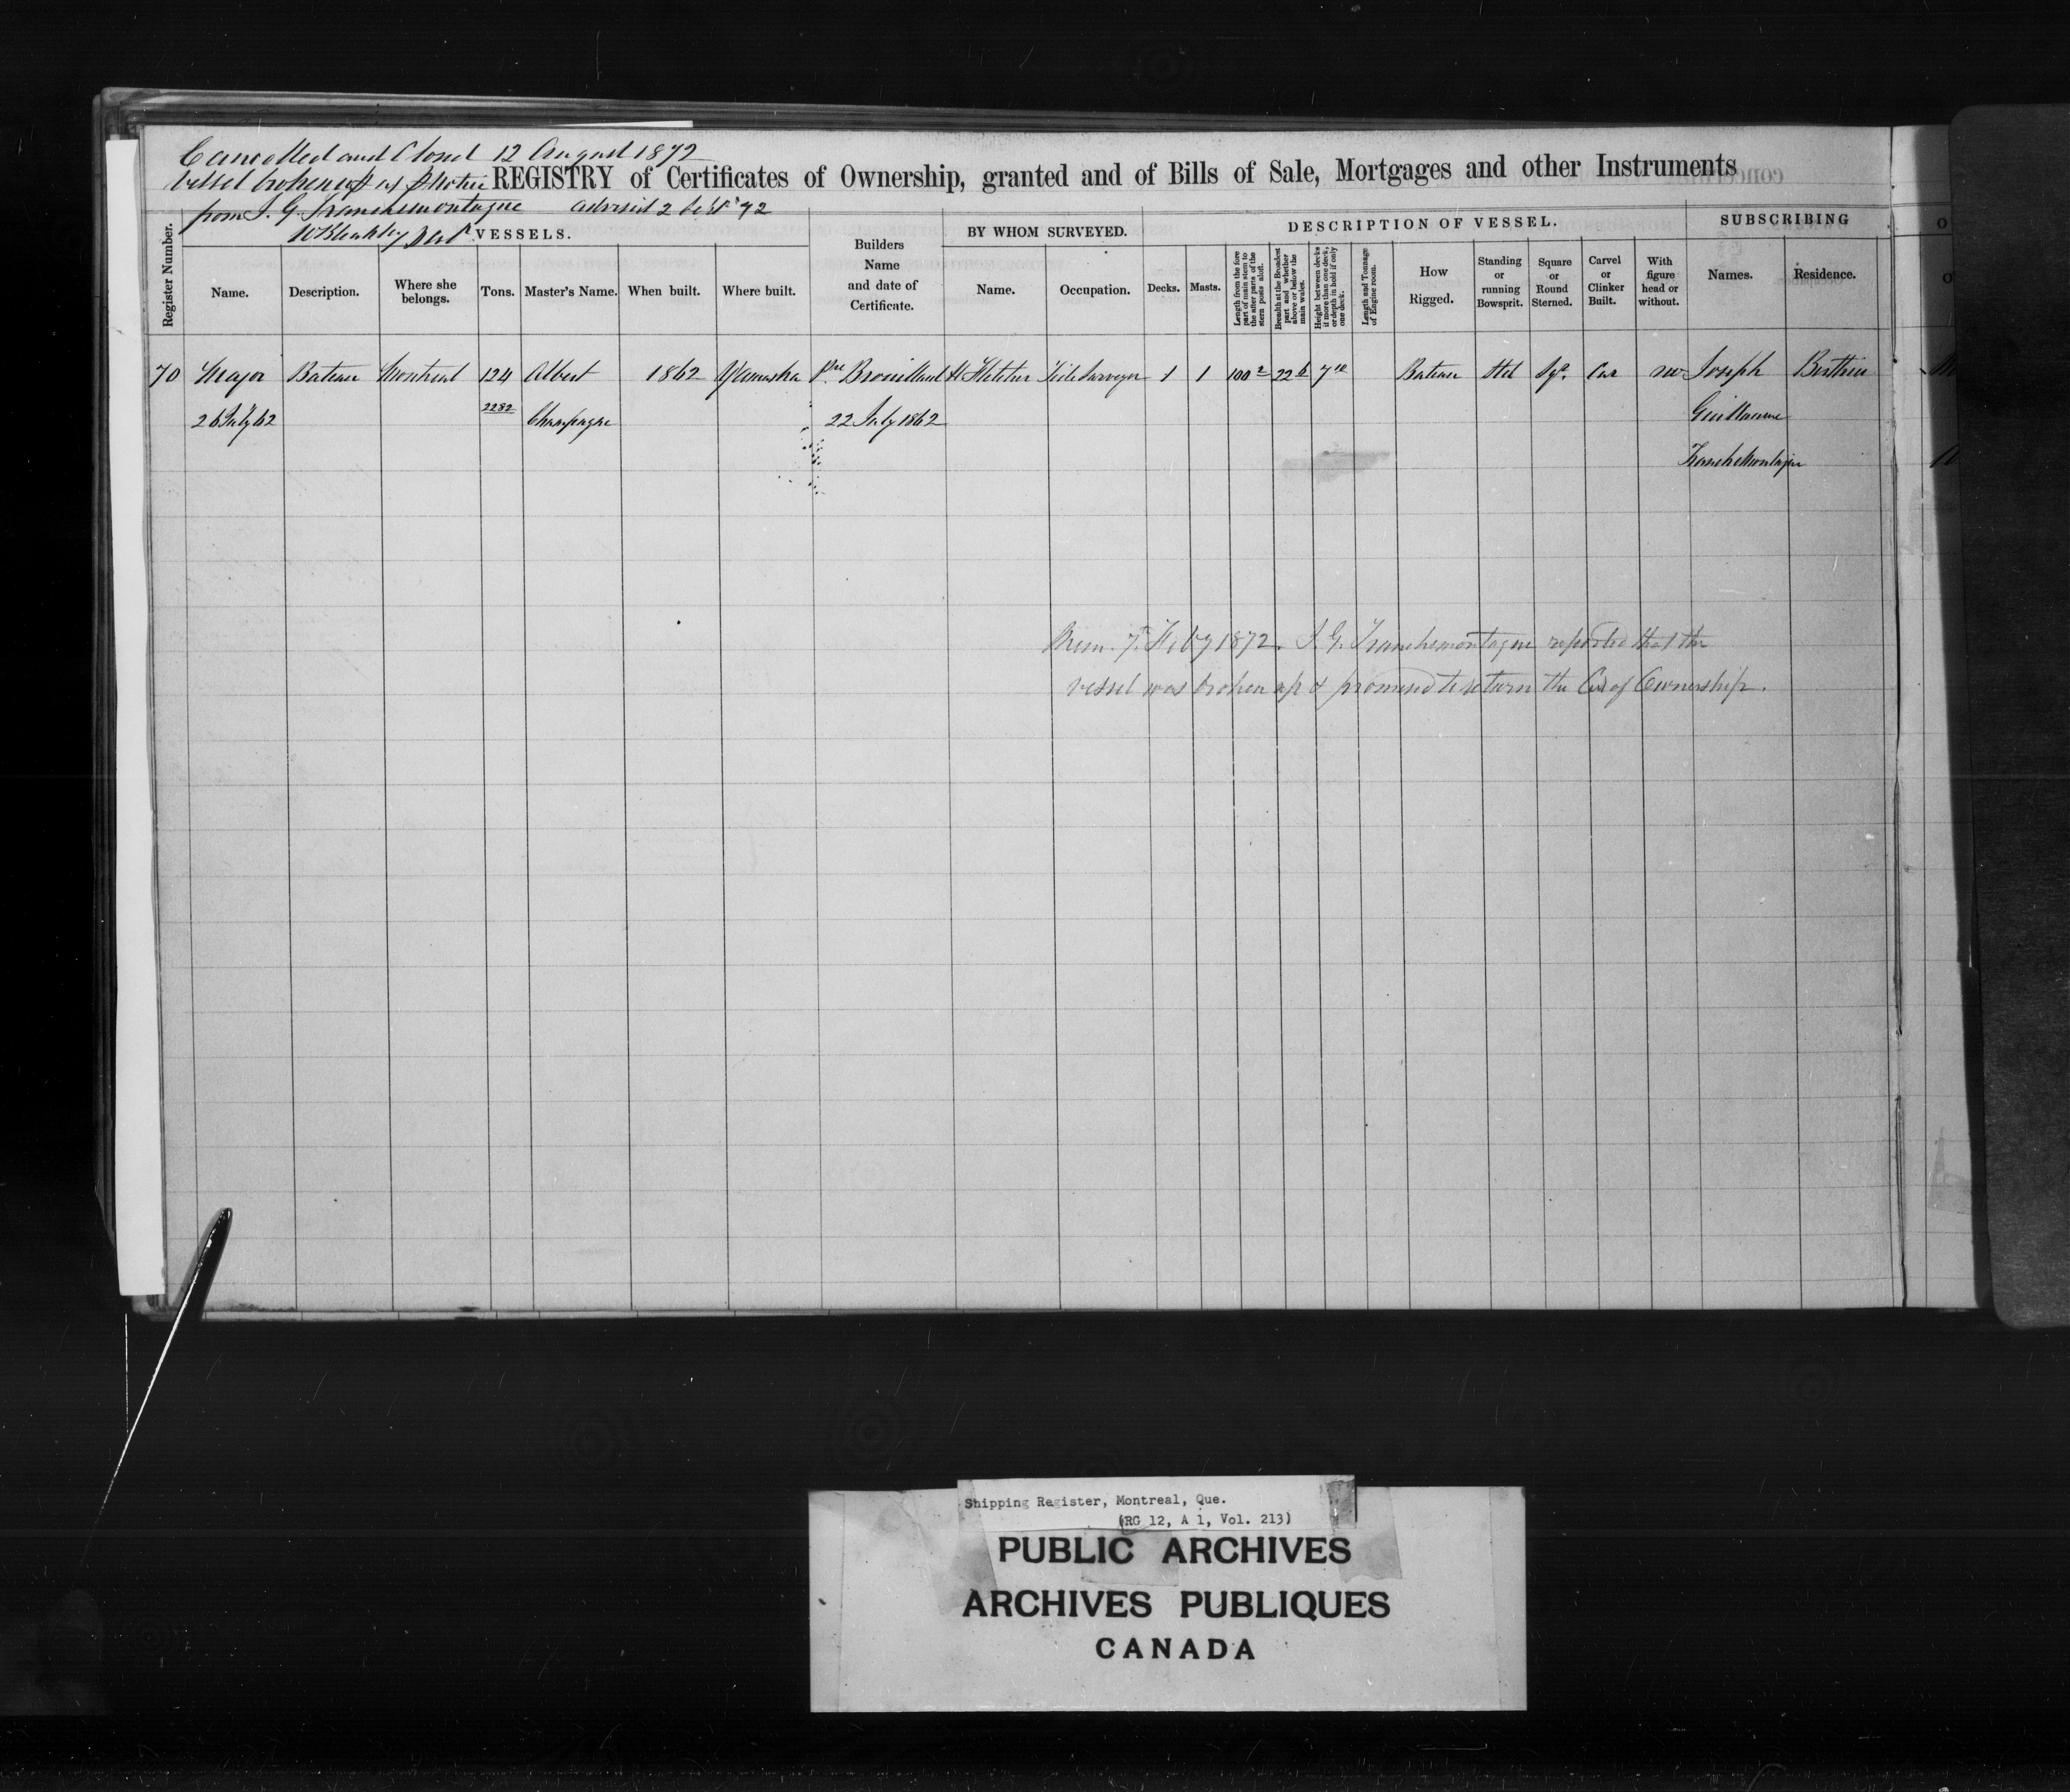 Cancelled and Closed 12 August 1872
Vessel broken up as p Notice
REGISTRY of Certificates of Ownership, granted and of Bills of Sale, Mortgages and other Instruments
from J. G. Tranchemontagne advised 2 Sept '72
Register Number.
VESSELS.
Name.
Description.
Where she belongs.
Tons.
Master's Name.
When built.
Where built.
Builders Name and date of Certificate.
BY WHOM SURVEYED.
Name.
Occupation.
DESCRIPTION OF VESSEL.
Decks.
Masts.
Length from the fore part of main stem to the after parts of the stern posts aloft.
Breadth at the Broadest part and whether above or below the main wales.
Height between decks if more than one deck, or depth in hold if only one deck.
Length and Tonnage of Engine room.
How Rigged.
Standing or running Bowsprit.
Square or Round Sterned.
Carvel or Clinker Built.
With figure head or without.
SUBSCRIBING
Names.
Residence.
70 Major Bateau Montreal 124 Albert 1862 Yamaska Pre Brouillard H Fletcher Tide Surveyor 1 1 100 2 22 6 7 10 Bateau Std Sqr. Car no Joseph Berthier
26 July 62 2282 Champagne 22 July 1862 Guillaume
Tranchemontagne
Mem. 7th Feby 1872. J. G. Tranchemontagne reported that the
vessel was broken up & promised to return the Cer of Ownership.
Shipping Register, Montreal, Que.
(RG 12, A 1, Vol. 213)
PUBLIC ARCHIVES
ARCHIVES PUBLIQUES
CANADA